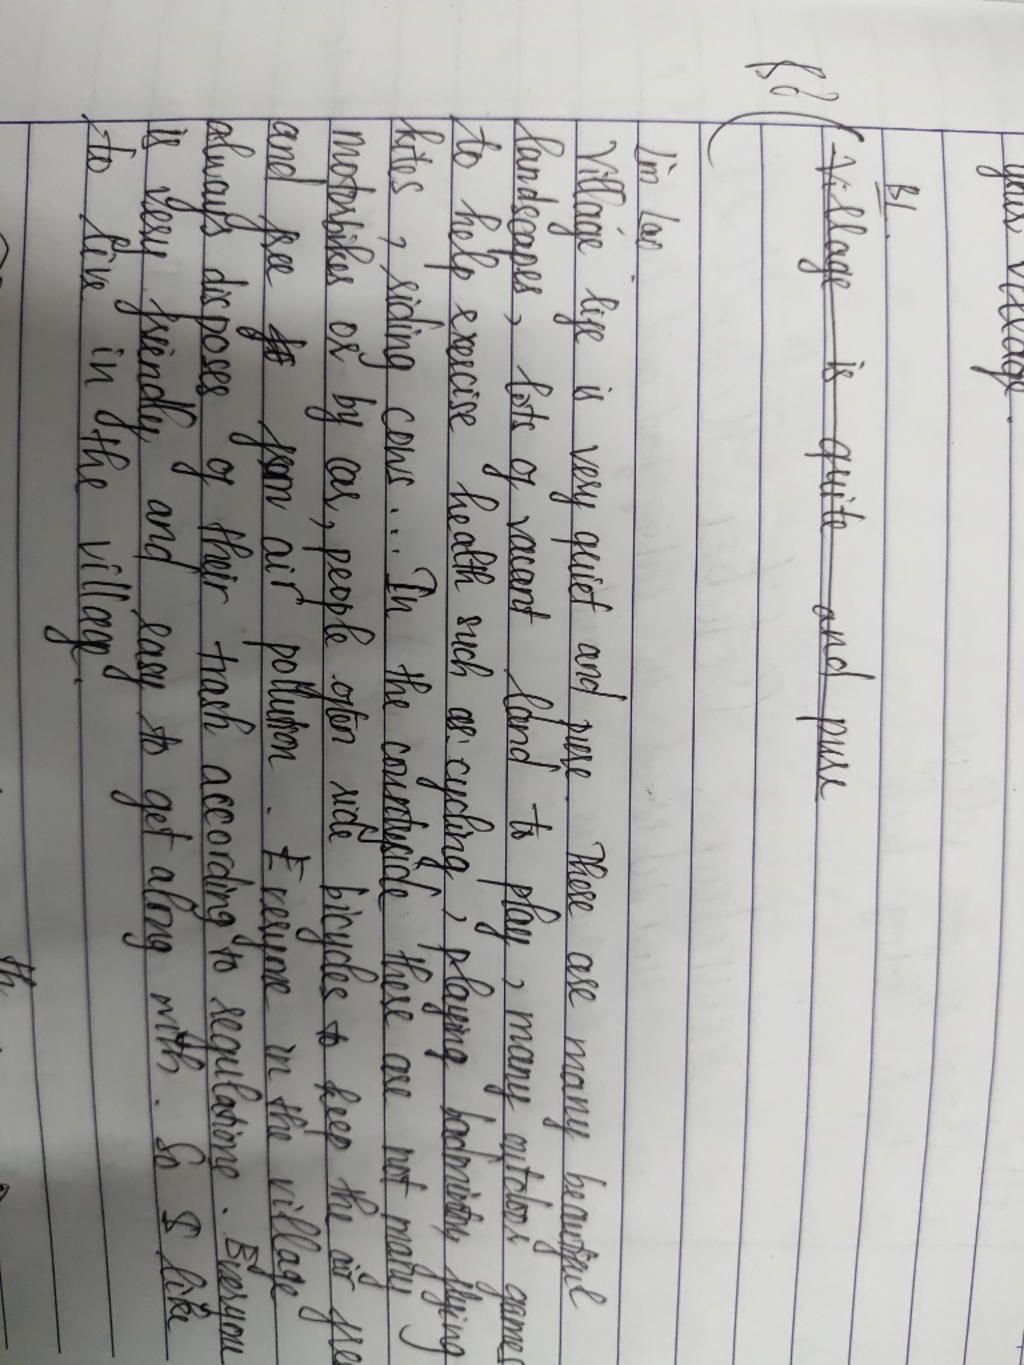 your village.
B1.
Village is quite and pure
Im Lao
Village life is very quiet and pure. There are many beautiful
landscapes, lots of vacant land to play, many outdoor games
to help exercise health such as cycling, playing badminton, flying
kites, riding cows... In the countryside there are not many
motorbikes or by car, people often ride bicycles to keep the air fre
and free from air pollution. Everyone in the village
always disposes of their trash according to regulations. Everyone
is very friendly and easy to get along with. So I like
to live in the village.
th